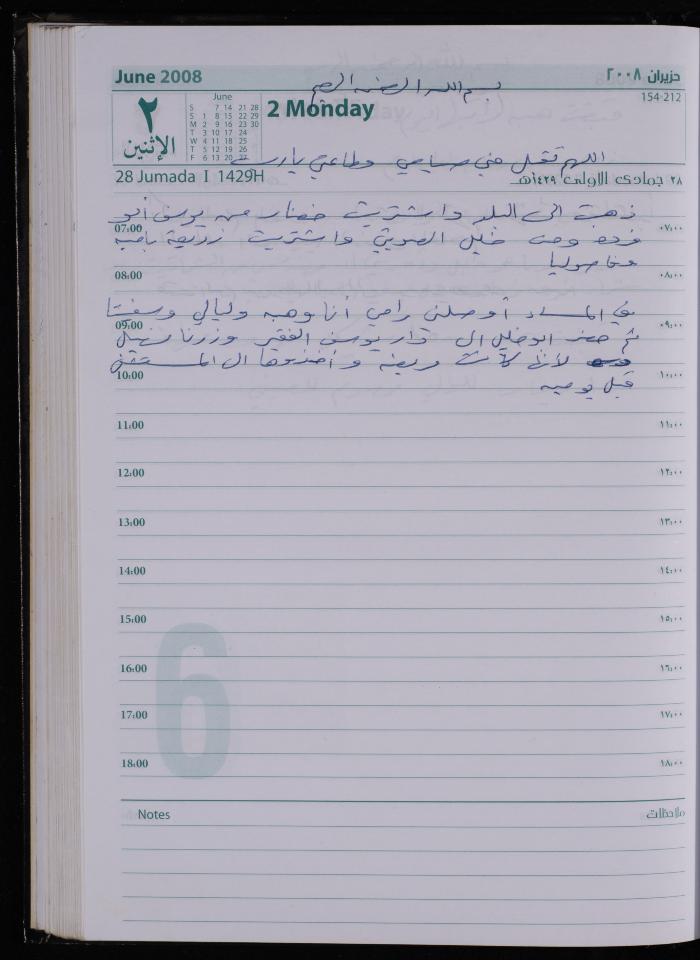 June 2008 حزيران ٢٠٠٨
بسم الله الرحمن الرحيم
154-212
٢ الإثنين
June
S 7 14 21 28
S 1 8 15 22 29
M 2 9 16 23 30
T 3 10 17 24
W 4 11 18 25
T 5 12 19 26
F 6 13 20 27
2 Monday
اللهم تقبل مني صيامي وطاعتي يا رب
28 Jumada I 1429H ٢٨ جمادى الاولى ١٤٢٩هـ
ذهبت الى البلد واشتريت خضار من يوسف أبو
07:00 ٠٧:٠٠
فرده ومن خليل الصويتي واشتريت زريعة بامية
وفاصوليا
08:00 ٠٨:٠٠
في المساء أوصلني رامي أنا وهبه وليالي
09:00 ٠٩:٠٠
ثم حضر ابو خليل الى دار يوسف الفقير وزرنا
لأنها كانت مريضه وأخذوها الى المستشفى
10:00 ١٠:٠٠
قبل يومين
11:00 ١١:٠٠
12:00 ١٢:٠٠
13:00 ١٣:٠٠
14:00 ١٤:٠٠
15:00 ١٥:٠٠
6
16:00 ١٦:٠٠
17:00 ١٧:٠٠
18:00 ١٨:٠٠
Notes ملاحظات